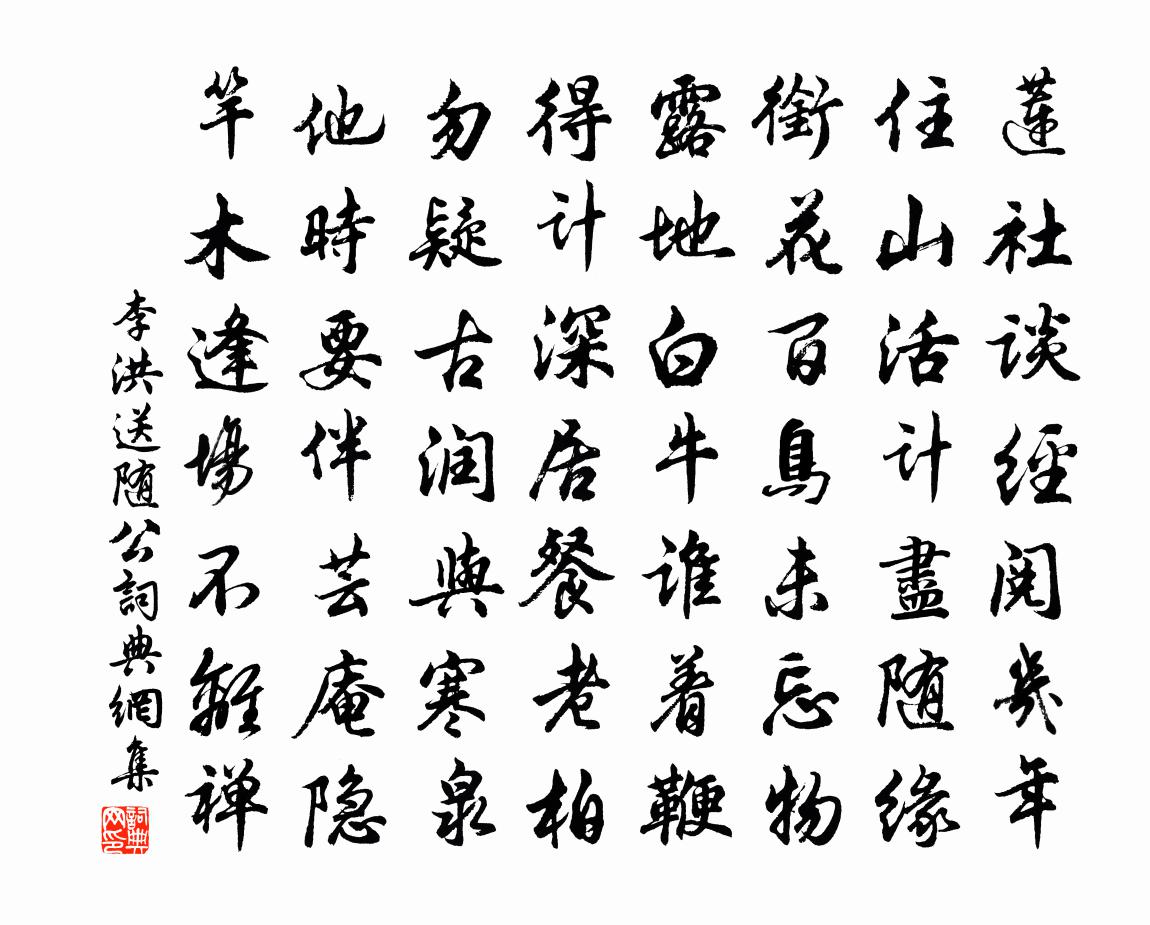 蓮社談經閱幾年
住山活計盡随緣
銜花百鳥未忘物
露地白牛誰着鞭
得計深居餐老柏
勿疑古润與寒泉
他時要伴芸庵隐
竿木逢場不離禅
李洪送随公詞典網集
詞典网印